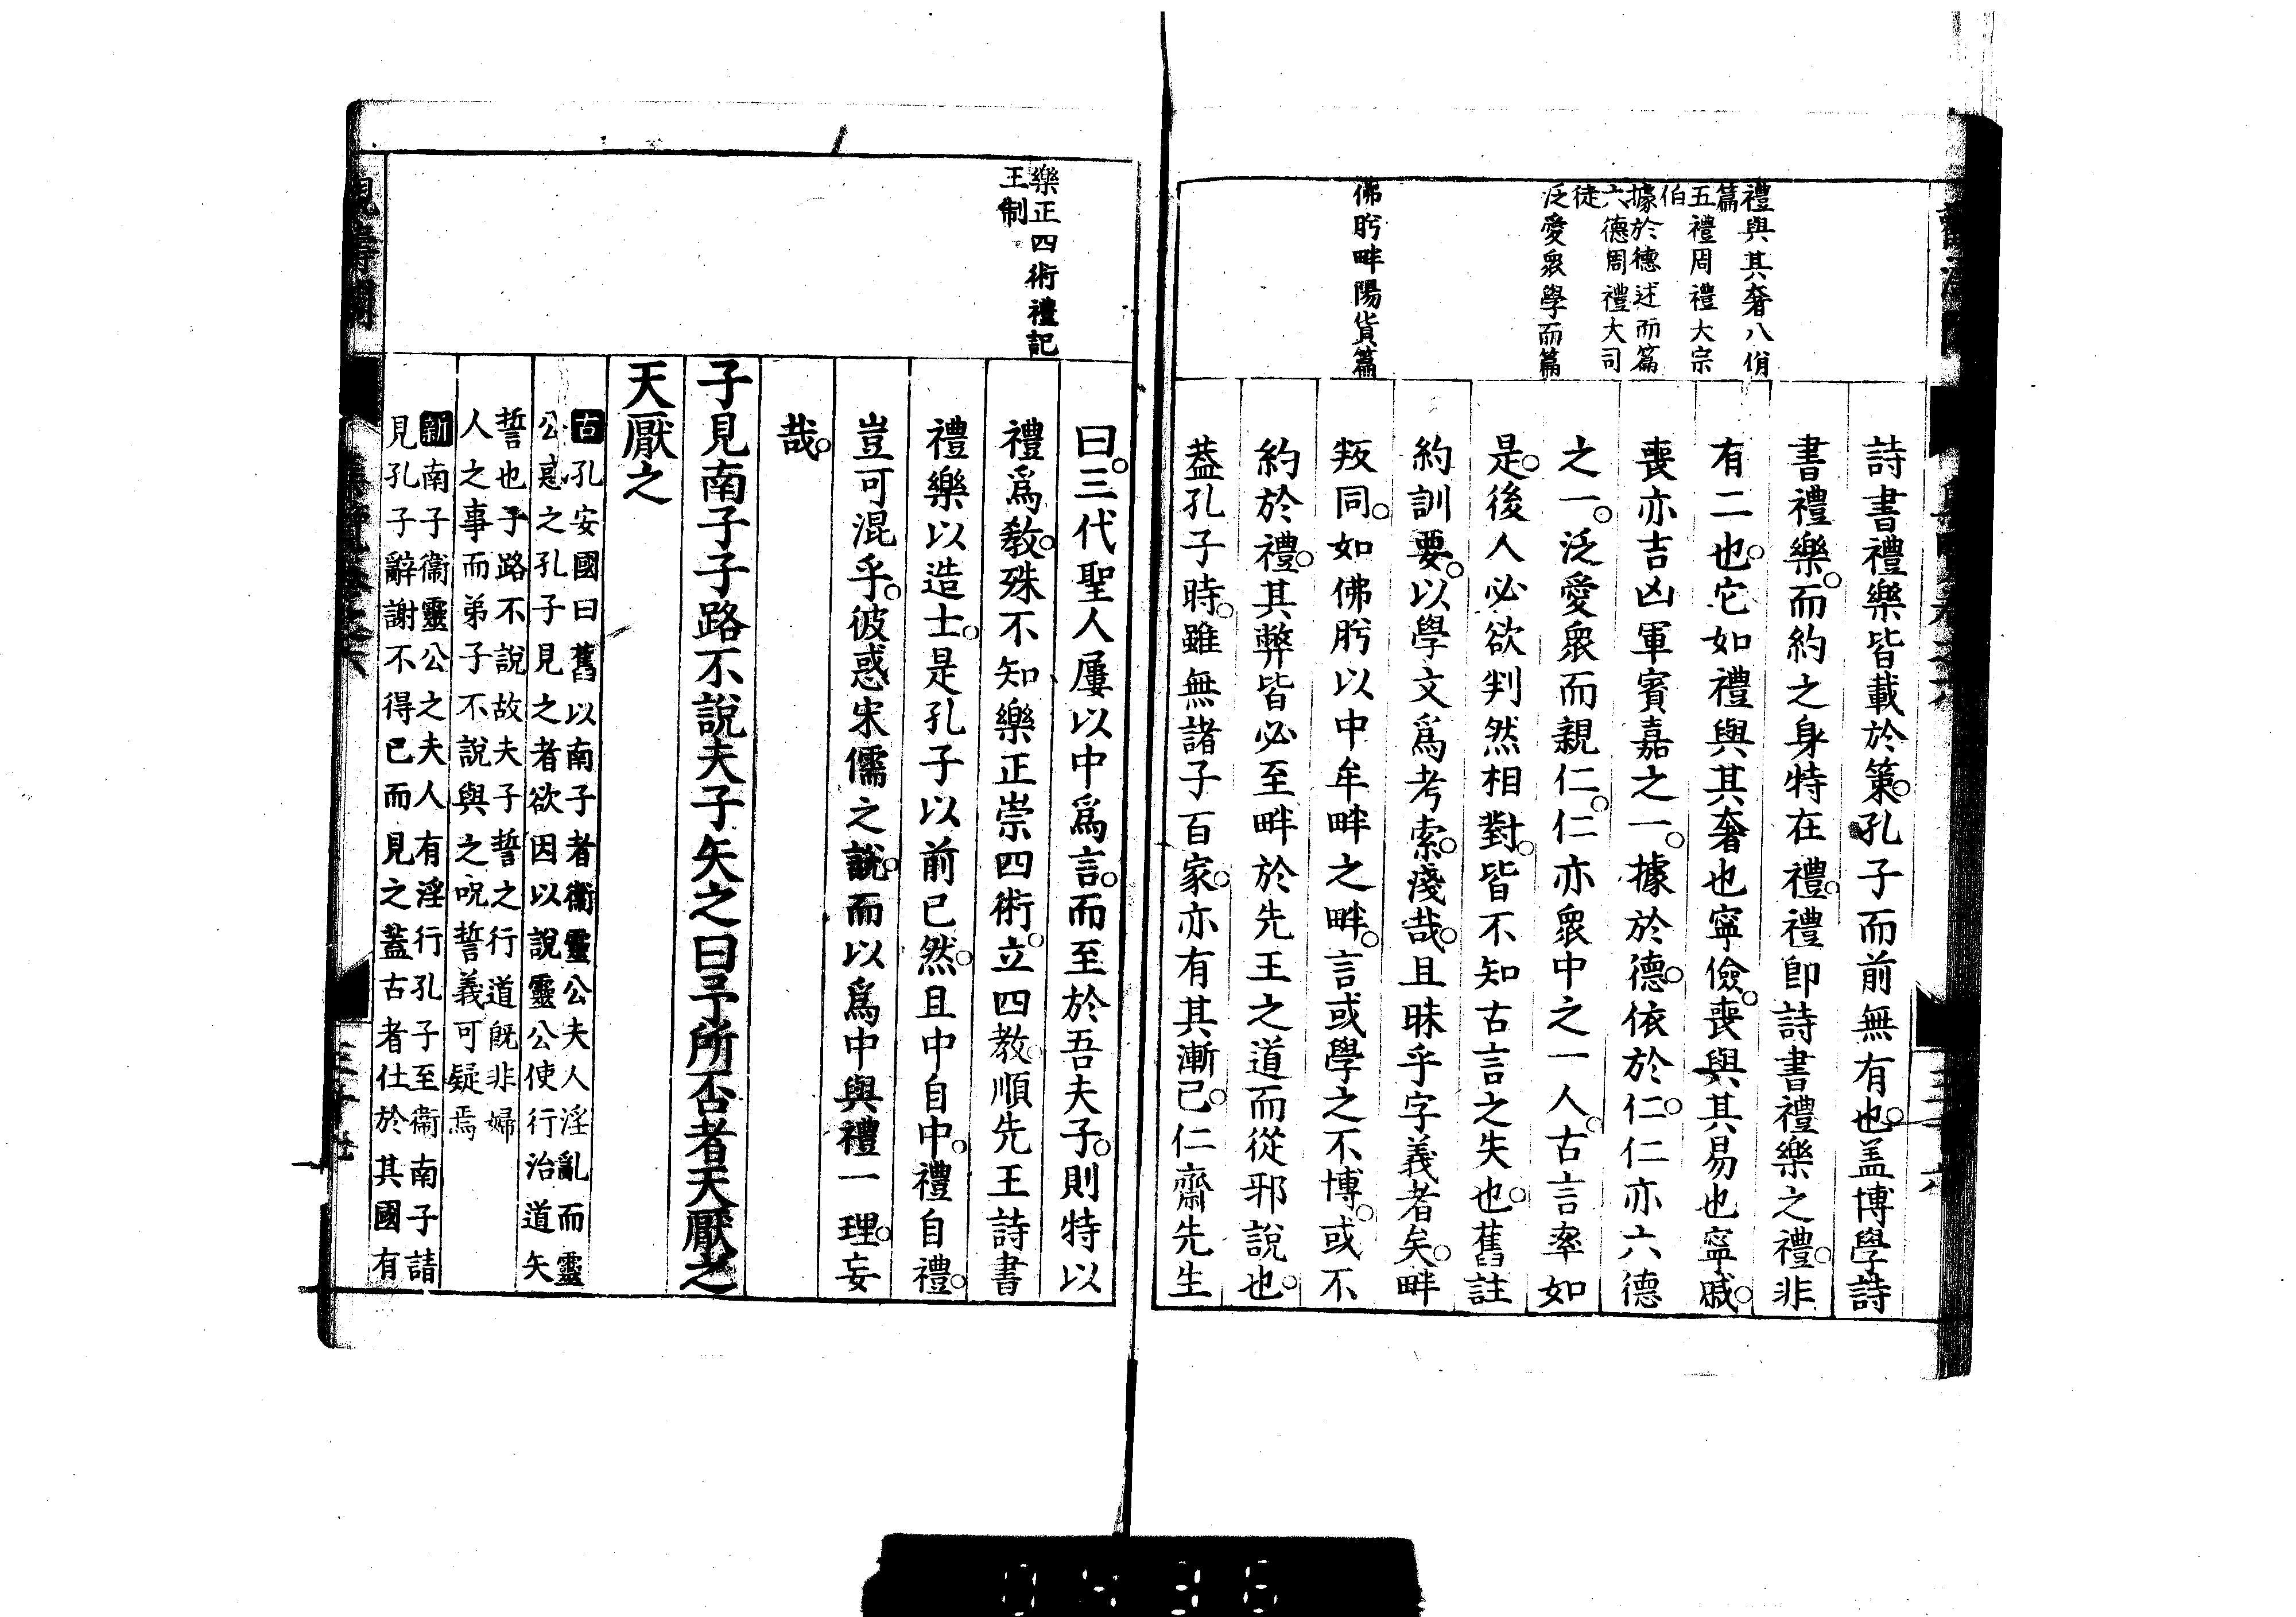 禮與其奢八佾
篇
五禮周禮大宗
伯
據於德述而篇
六德周禮大司
徒
泛愛衆學而篇
佛肸畔陽貨篇
詩書禮樂皆載於策孔子而前無有也盖博學詩
書禮樂而約之身特在禮禮即詩書禮樂之禮非
有二也它如禮與其奢也寧儉喪與其易也寧戚
喪亦吉凶軍賓嘉之一據於德依於仁仁亦六德
之一泛愛衆而親仁仁亦衆中之一人古言率如
是後人必欲判然相對皆不知古言之失也舊註
約訓要以學文爲考索淺哉且昧乎字義者矣畔
叛同如佛肸以中牟畔之畔言或學之不博或不
約於禮其弊皆必至畔於先王之道而從邪說也
葢孔子時雖無諸子百家亦有其漸已仁齋先生
樂正四術禮記
王制
曰三代聖人屢以中爲言而至於吾夫子則特以
禮爲教殊不知樂正崇四術立四教順先王詩書
禮樂以造士是孔子以前已然且中自中禮自禮
豈可混乎彼惑宋儒之說而以爲中與禮一理妄
哉
子見南子子路不說夫子矢之曰予所否者天厭之
天厭之
古孔安國曰舊以南子者衞靈公夫人淫亂而靈
公惑之孔子見之者欲因以說靈公使行治道矢
誓也子路不說故夫子誓之行道旣非婦
人之事而弟子不說與之呪誓義可疑焉
新南子衞靈公之夫人有淫行孔子至衞南子請
見孔子辭謝不得已而見之蓋古者仕於其國有